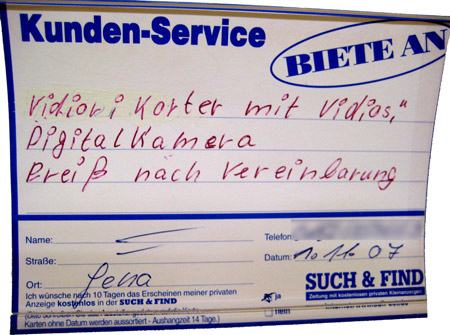 Kunden-Service
BIETE AN
Vidiori Korter mit Vidios,"
Digitalkamera
Preiß nach Vereinbarung
Name:
Telefon:
Straße:
Datum: 10.11.07
Ort: Jena
Ich wünsche nach 10 Tagen das Erscheinen meiner privaten
Anzeige kostenlos in der SUCH & FIND
ja
nein
SUCH & FIND
Zeitung mit kostenlosen privaten Kleinanzeigen
Karten ohne Datum werden aussortiert - Aushangzeit 14 Tage.)